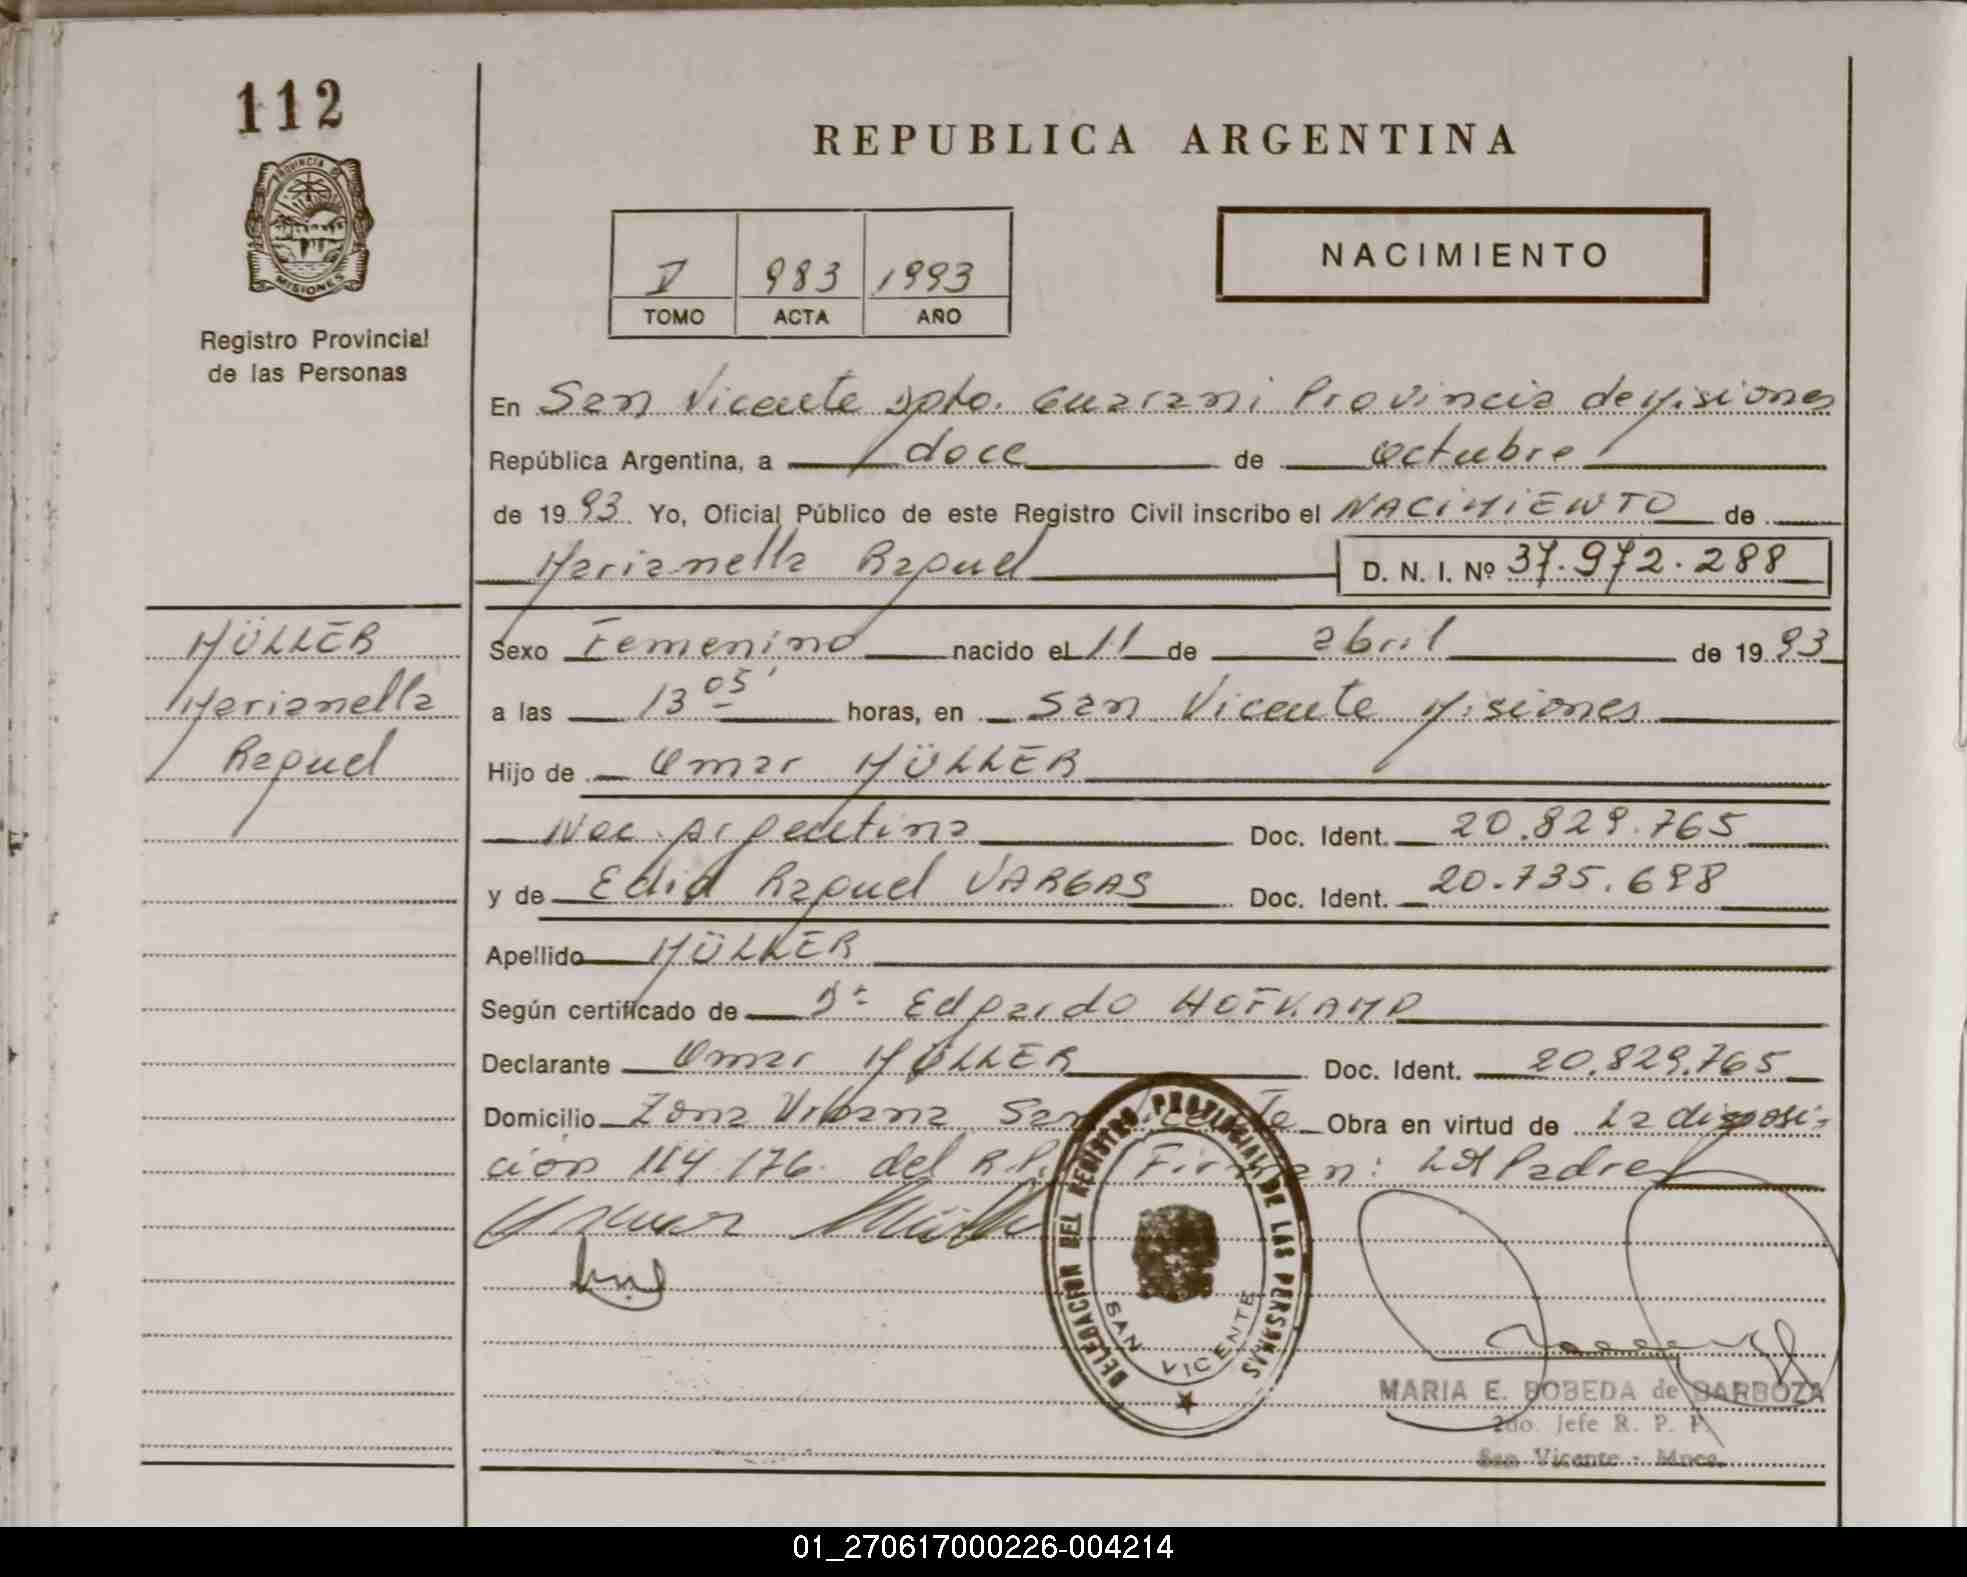 112
PROVINCIA DE
MISIONES
Registro Provincial
de las Personas
REPUBLICA ARGENTINA
V 983 1993
TOMO ACTA AÑO
NACIMIENTO
En San Vicente Dpto. Guarani Provincia de Misiones
República Argentina, a doce de octubre
de 1993. Yo, Oficial Público de este Registro Civil inscribo el NACIMIENTO de
Marianella Raquel D. N. I. Nº 37.972.288
MÜLLER
Marianella
Raquel
Sexo Femenino nacido el 11 de abril de 1993
a las 13 05' horas, en San Vicente Misiones
Hijo de Omar MÜLLER
Nac. Argentina Doc. Ident. 20.829.765
y de Edid Raquel VARGAS Doc. Ident. 20.735.698
Apellido MÜLLER
Según certificado de Dr Edgardo HOFKAMP
Declarante Omar MÜLLER Doc. Ident. 20.829.765
Domicilio Zona Urbana San Vicente Obra en virtud de La disposi-
ción 114/176. del R.P. Firman: Padre
Omar Müller
DELEGACION DEL REGISTRO PROVINCIAL DE LAS PERSONAS
SAN VICENTE
MARIA E. BOBEDA de BARBOZA
2do. Jefe R. P. P.
San Vicente - Mnes.
01_270617000226-004214